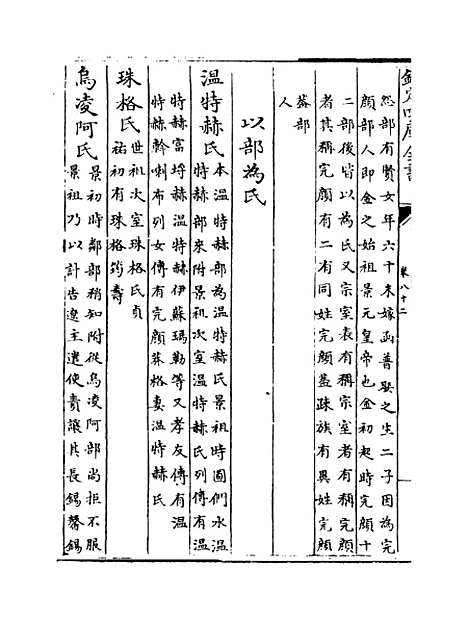 欽定四庫全書
卷八十二
怨部有賢女年六十未嫁函普娶之生二子因為完
顔部人即金之始祖景元皇帝也金初起時完顔十
二部後皆以為氏又宗室表有稱宗室者有稱完顔
者其稱完顔有二有同姓完顔蓋疎族有異姓完顔
蓋部
人
以部為氏
温特赫氏本温特赫部為温特赫氏景祖時圖們水温
特赫部來附景祖次室温特赫氏列傳有温
特赫富埒赫温特赫伊蘇瑪勒等又孝友傳有温
特赫斡喇布列女傳有完顔莽格妻温特赫氏
珠格氏世祖次室珠格氏貞
祐初有珠格筠夀
烏凌阿氏景初時鄰部稍知附從烏凌阿部尚拒不服
景祖乃以計告遼主遣使責讓其長錫馨錫